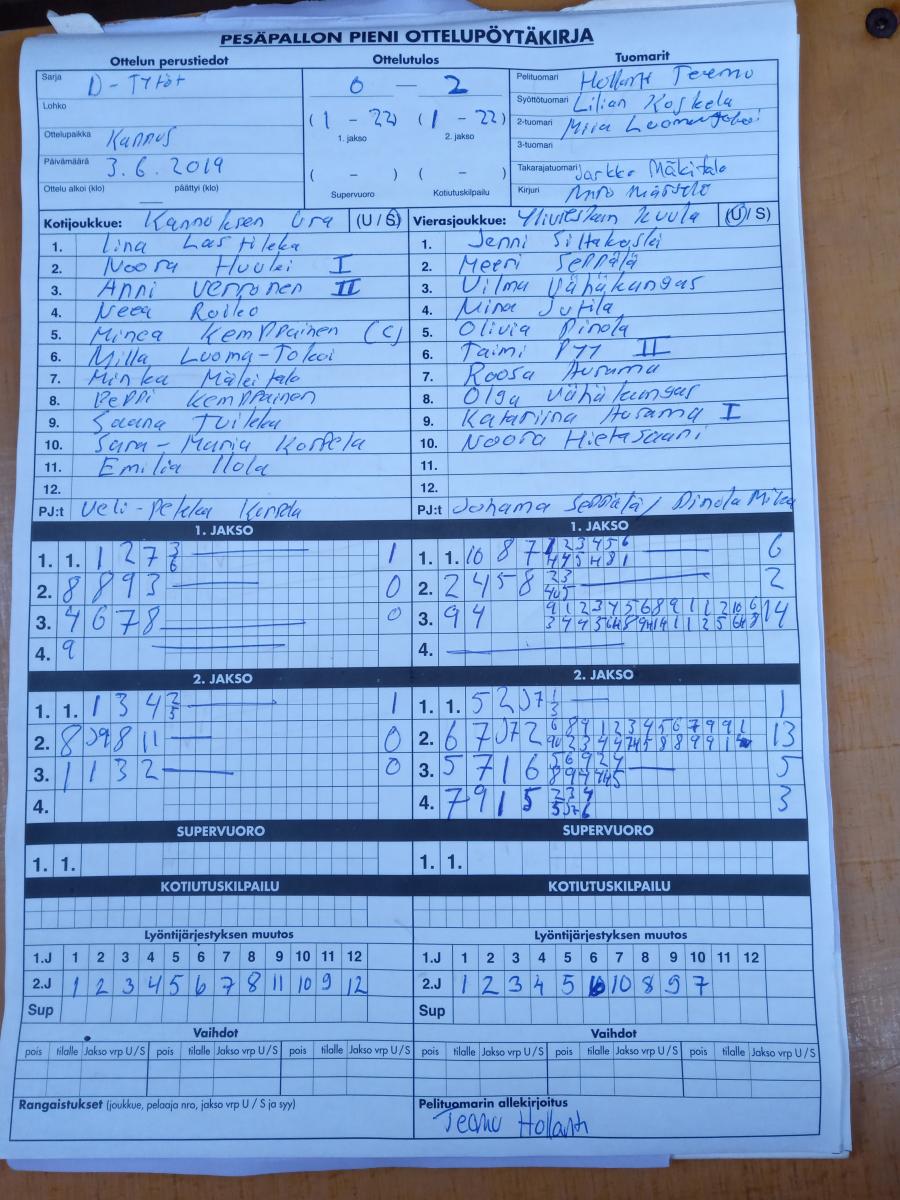 PESÄPALLON PIENI OTTELUPÖYTÄKIRJA
Ottelun perustiedot Ottelutulos Tuomarit
Sarja D-Tytöt 0 — 2 Pelituomari Hollanti Teemu
Lohko Syöttötuomari Lilian Koskela
(1 - 22) (1 - 22) 2-tuomari Miia
1. jakso 2. jakso
Ottelupaikka Kannus 3-tuomari
Päivämäärä 3.6.2019 ( - ) ( - ) Takarajatuomari Jarkko Mäkitalo
Ottelu alkoi (klo) päättyi (klo) Supervuoro Kotiutuskilpailu Kirjuri
Kotijoukkue: Kannuksen Ura (U / S) Vierasjoukkue: Ylivieskan Kuula (U / S)
1. Iina Lastikka 1. Jenni Siltakoski
2. Noora Huuki I 2. Meeri Seppälä
3. Anni Verronen II 3. Vilma Vähäkangas
4. Neea Roiko 4. Mina Jutila
5. Minea Kemppainen (C) 5. Olivia Pinola
6. Milla Luoma-Tokoi 6. Taimi Pyy II
7. Minka Mäkitalo 7. Roosa Aurama
8. Peppi Kemppainen 8. Olga Vähäkangas
9. Saana Tuikka 9. Katariina Aurama I
10. Sara-Maria Korpela 10. Noora Hietasaari
11. Emilia Ilola 11.
12. 12.
PJ:t Veli-Pekka PJ:t Johanna Seppälä / Pinola Mika
1. JAKSO 1. JAKSO
1. 1. 1 2 7 3 1 1. 1. 10 8 7 1 2 3 4 5 6 6
6 4 4 5 4 8 1
2. 8 8 9 3 0 2. 2 4 5 8 2 3 2
3. 4 6 7 8 0 3. 9 4 9 1 2 3 4 5 6 8 9 1 1 2 10 6 14
4. 9 4.
2. JAKSO 2. JAKSO
1. 1. 1 3 4 2 1 1. 1. 5 2 7 1 1
5 3
2. 8 9 8 11 0 2. 6 7 7 2 6 8 9 1 2 3 4 5 6 7 9 9 1 13
3. 1 1 3 2 0 3. 5 7 1 6 5 6 9 2 4 5
4. 4. 7 9 1 5 2 3 4 3
SUPERVUORO SUPERVUORO
1. 1. 1. 1.
KOTIUTUSKILPAILU KOTIUTUSKILPAILU
Lyöntijärjestyksen muutos Lyöntijärjestyksen muutos
1.J 1 2 3 4 5 6 7 8 9 10 11 12 1.J 1 2 3 4 5 6 7 8 9 10 11 12
2.J 1 2 3 4 5 6 7 8 11 10 9 12 2.J 1 2 3 4 5 6 10 8 9 7
Sup Sup
Vaihdot Vaihdot
pois tilalle Jakso vrp U / S pois tilalle Jakso vrp U / S pois tilalle Jakso vrp U / S pois tilalle Jakso vrp U / S pois tilalle Jakso vrp U / S pois tilalle Jakso vrp U / S
Rangaistukset (joukkue, pelaaja nro, jakso vrp U / S ja syy) Pelituomarin allekirjoitus
Teemu Hollanti